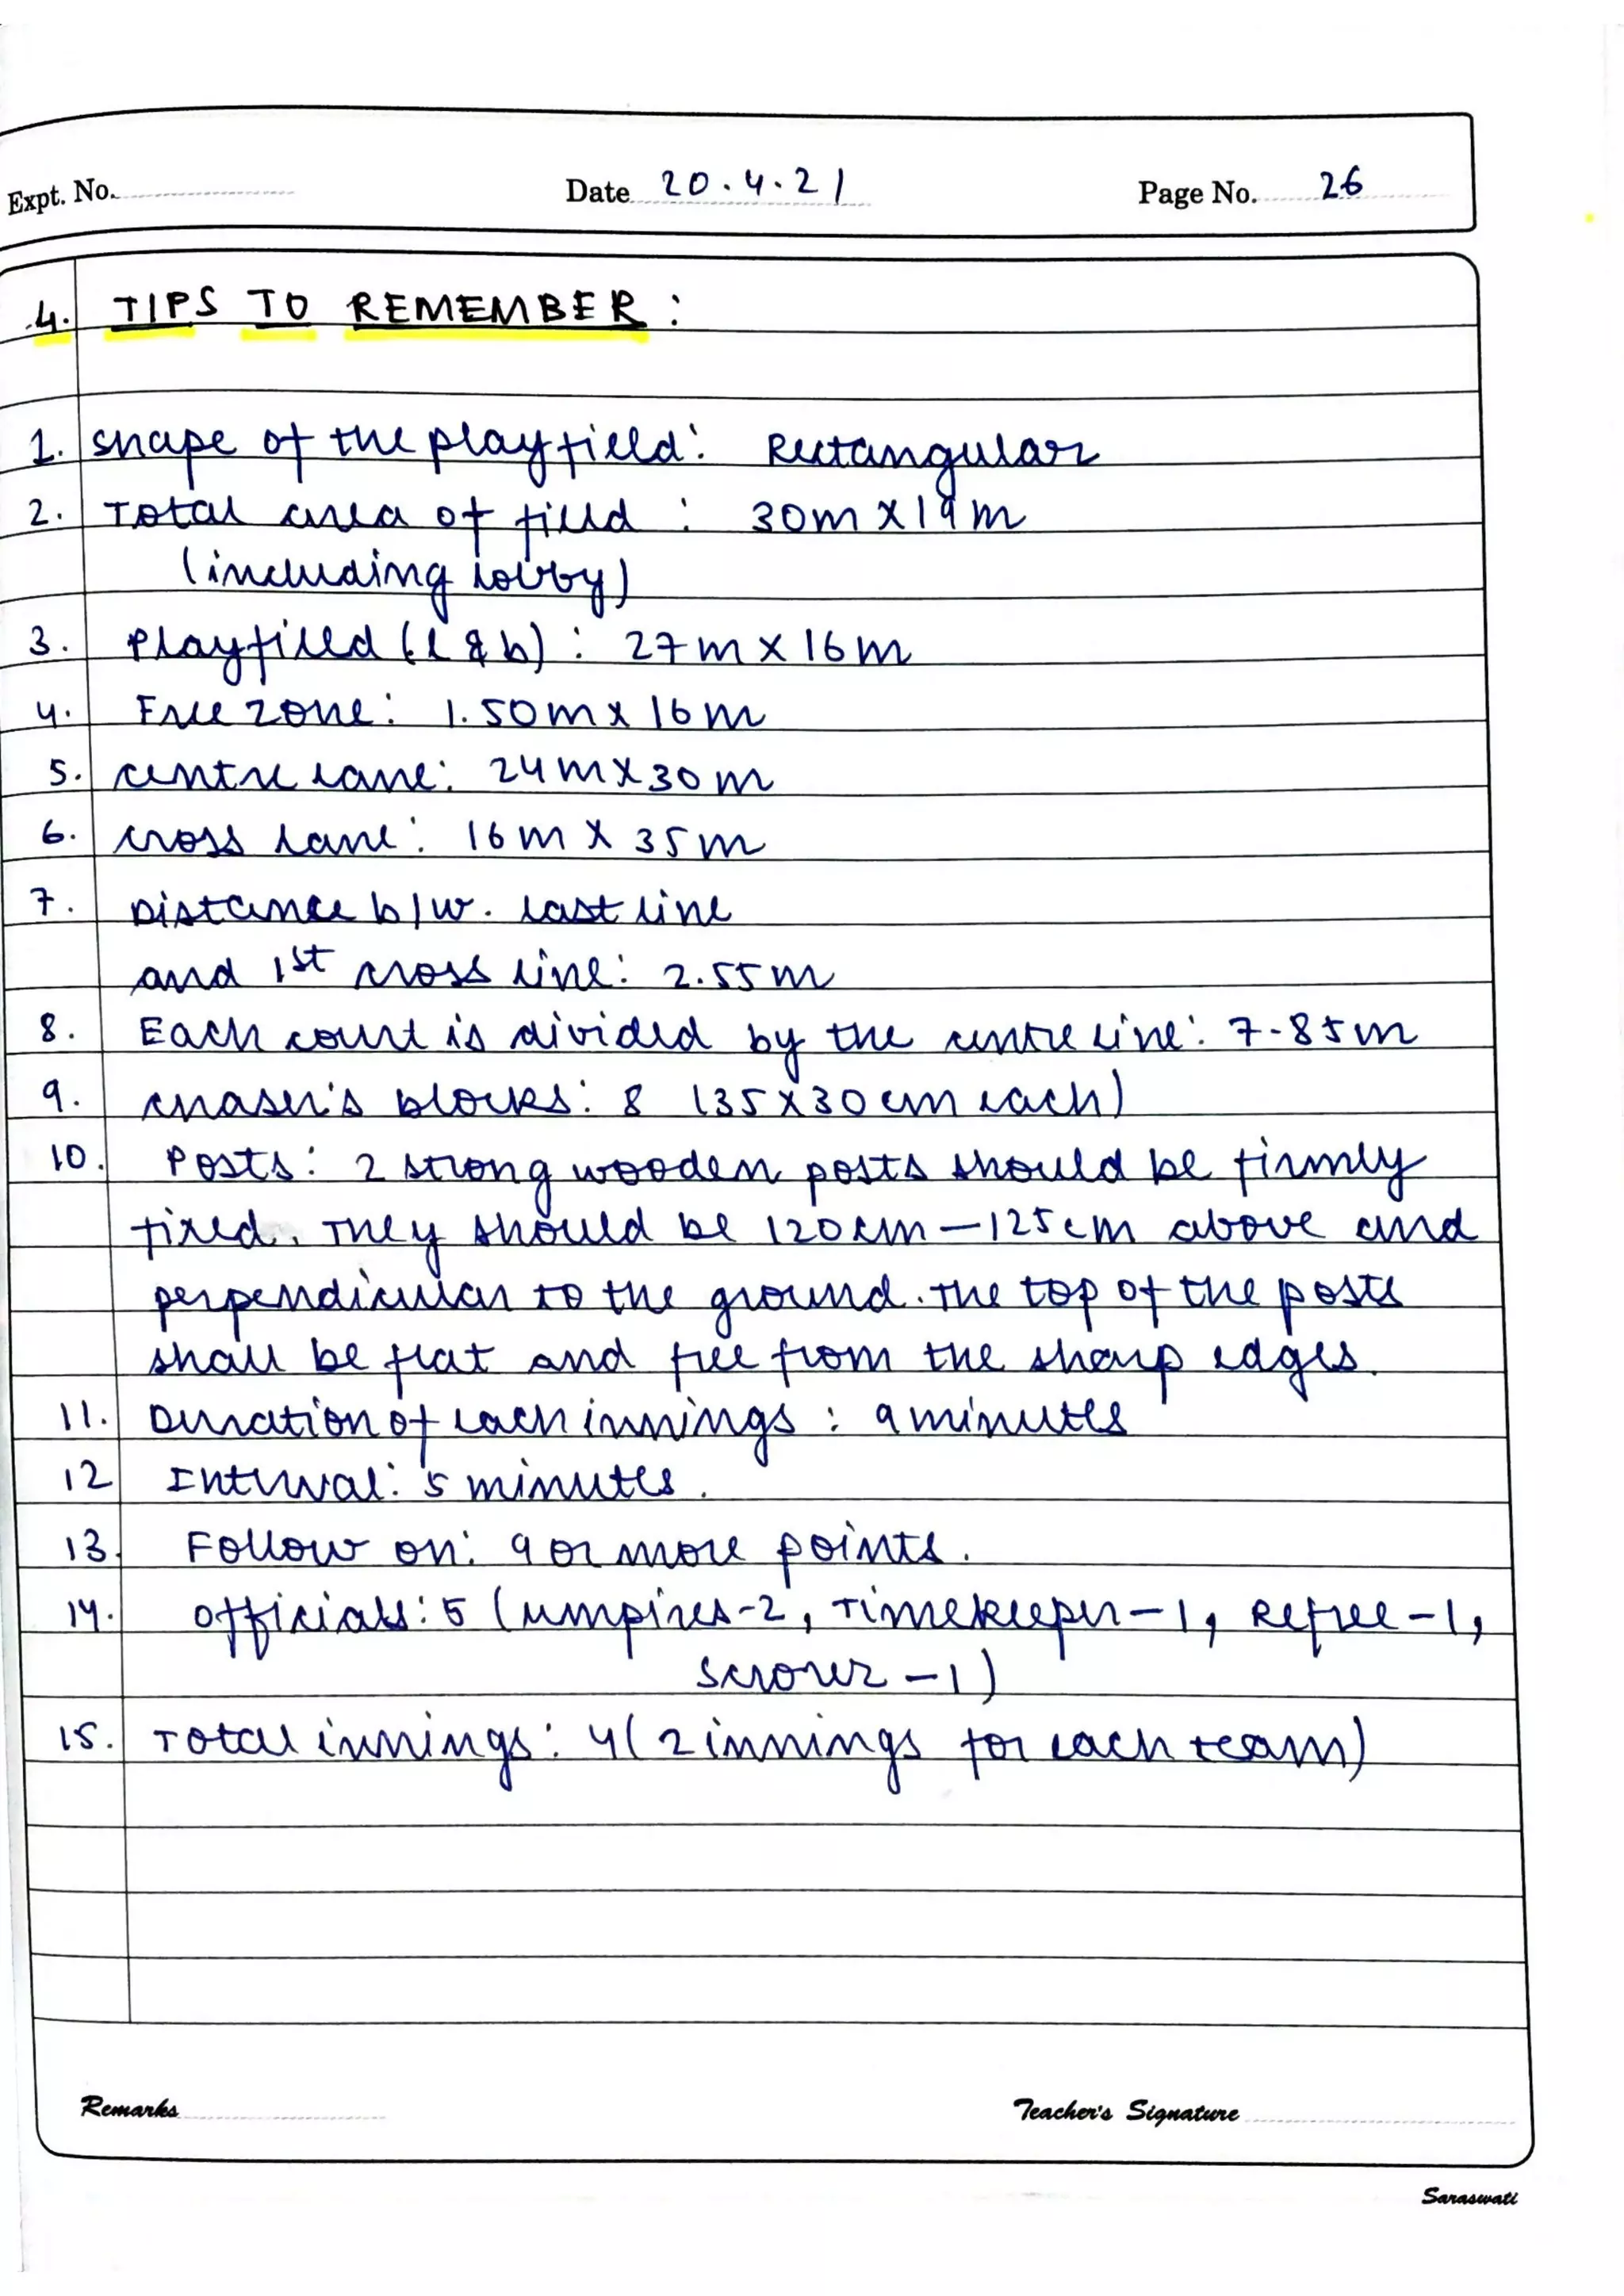 Expt. No. Date 20.4.21 Page No. 26
4. TIPS TO REMEMBER :
1. Shape of the playfield: Rectangular
2. Total area of field : 30m X 19m
(including lobby)
3. Playfield (l & b) : 27m X 16m
4. Free zone: 1.50m X 16m
5. centre lane: 24m X 30m
6. cross lane: 16m X 35m
7. Distance b/w. last line
and 1st cross line: 2.55m
8. Each court is divided by the centre line: 7-85m
9. chaser's blocks: 8 (35 X 30 cm each)
10. Posts: 2 strong wooden posts should be firmly
fixed. They should be 120cm - 125cm above and
perpendicular to the ground. The top of the posts
shall be flat and free from the sharp edges.
11. Duration of each innings : 9 minutes
12 Interval: 5 minutes.
13. Follow on: 9 or more points.
14. officials: 5 (umpires-2, Timekeeper-1, Refree-1,
Scrorer -1)
15. Total innings: 4(2 innings for each team)
Remarks Teacher's Signature
Saraswati